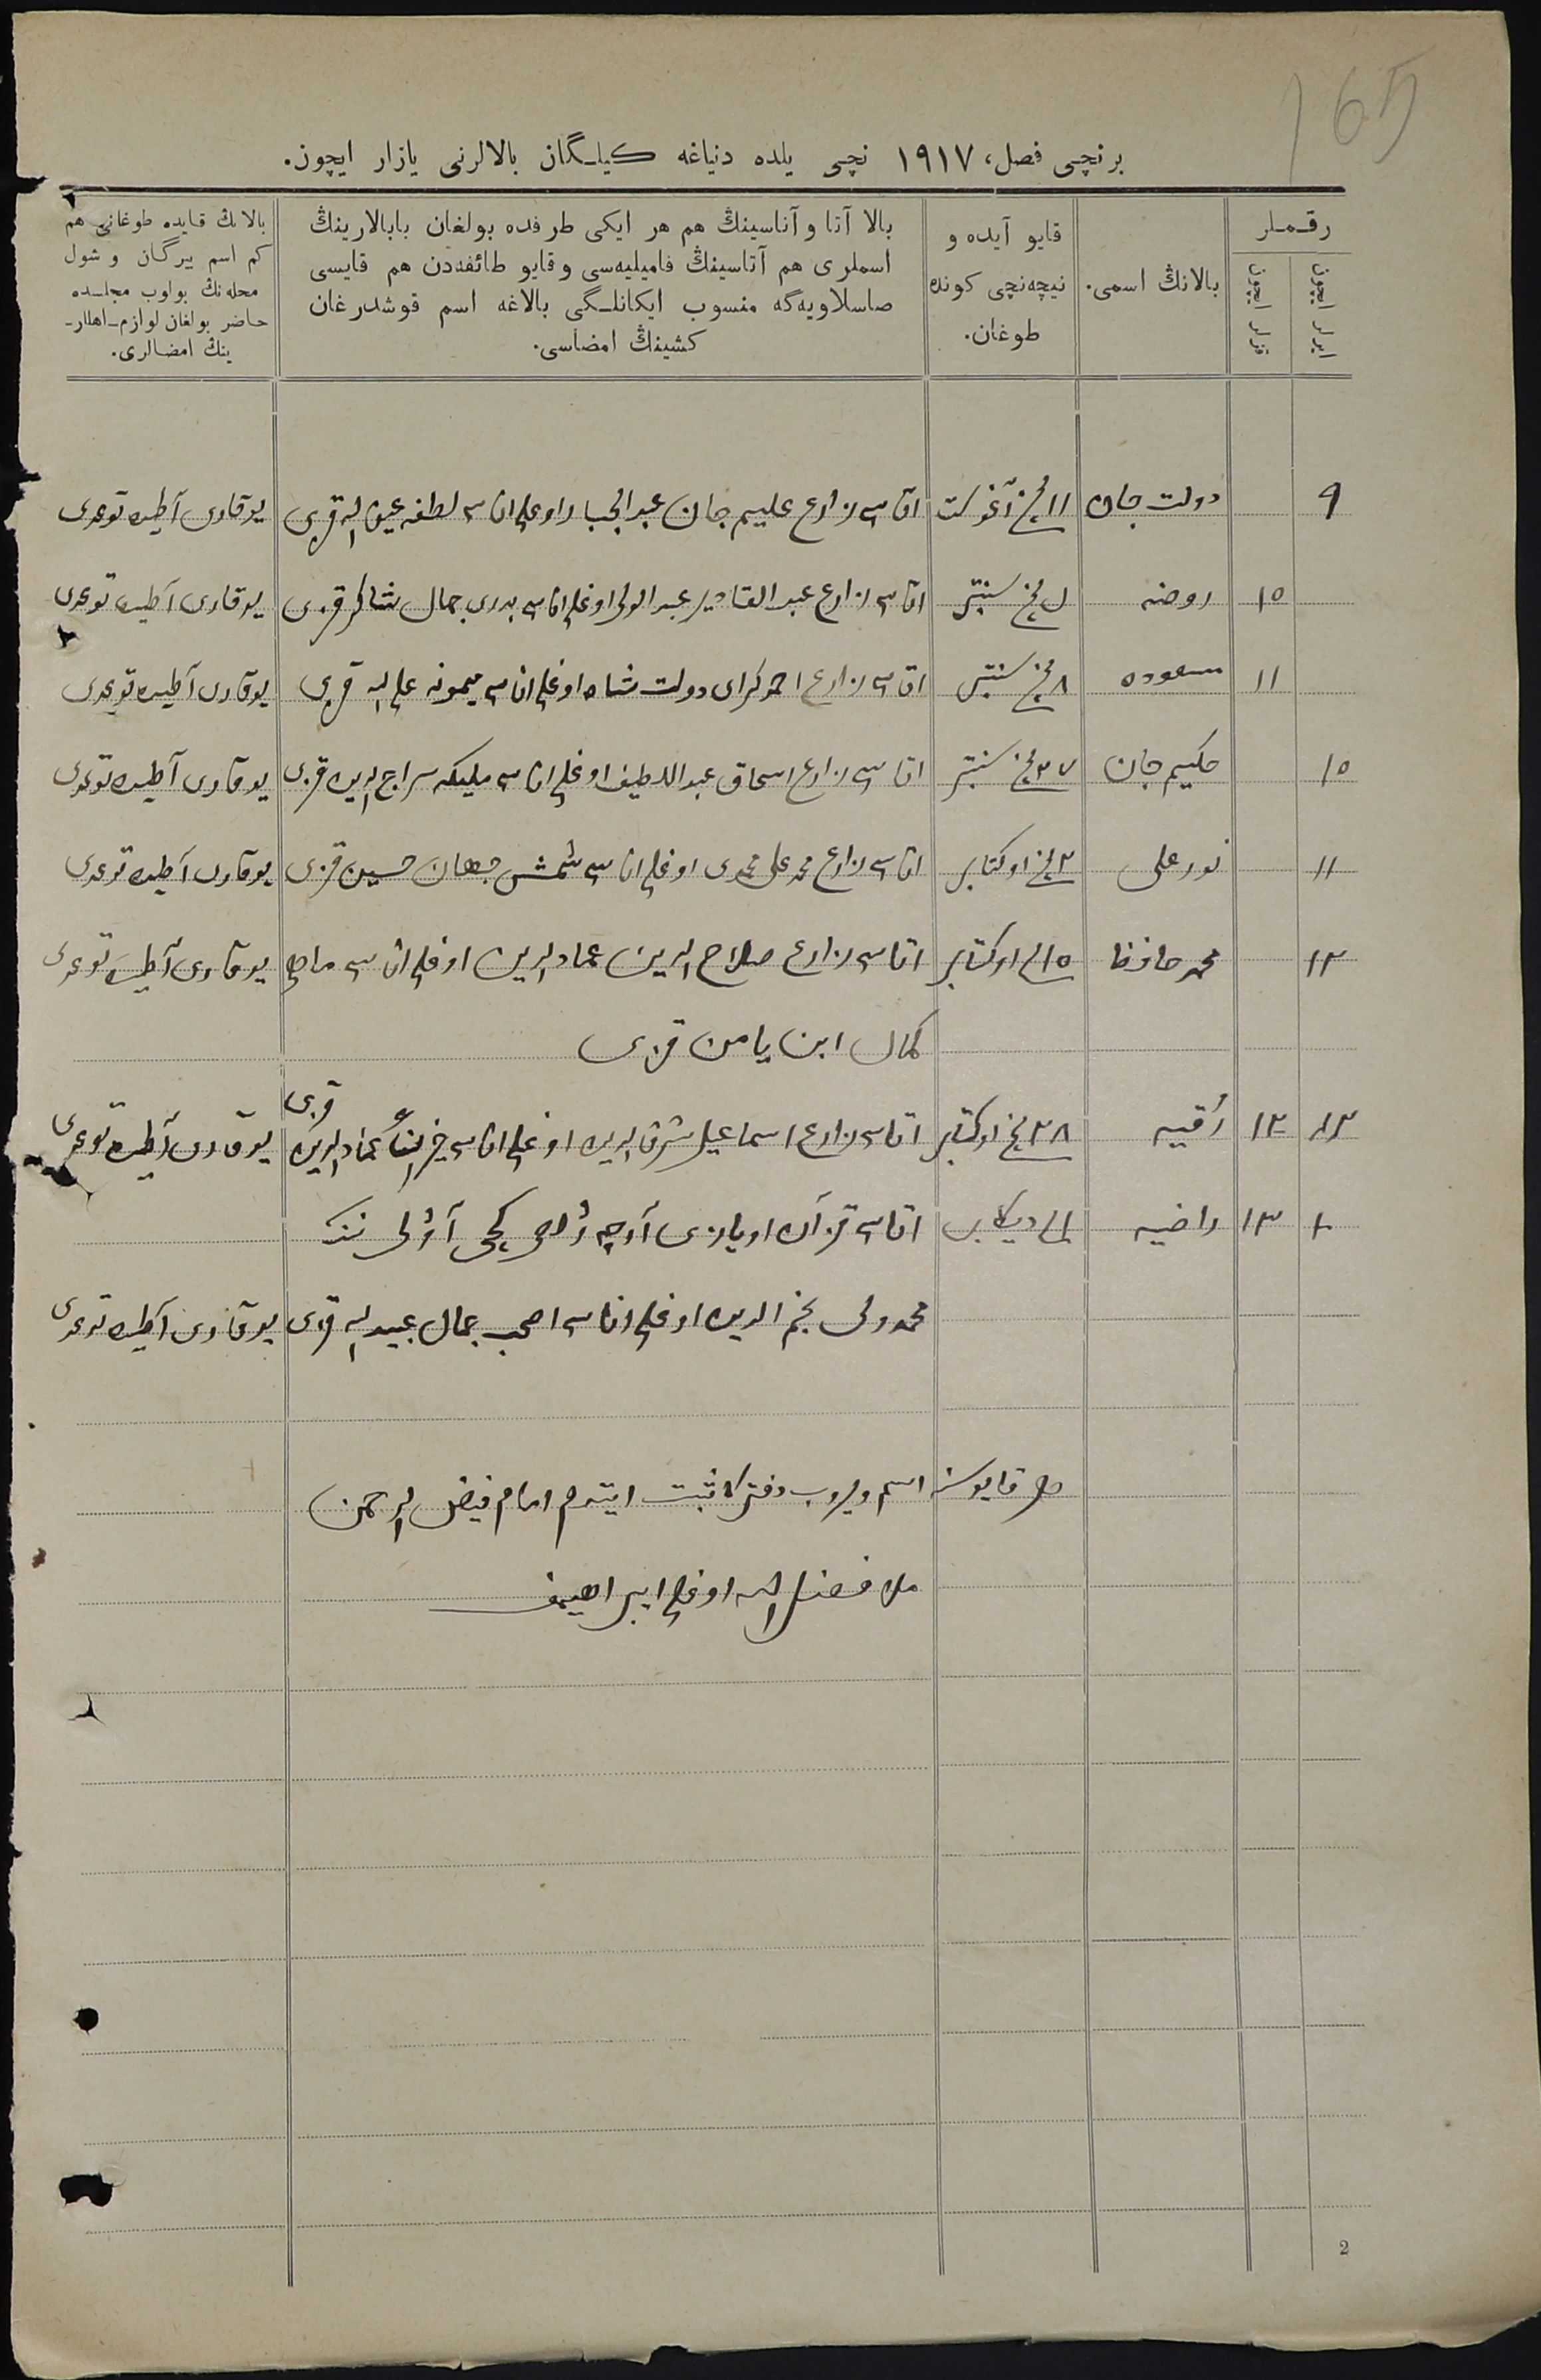 165
برنچی فصل، ١٩١٧ نچی یلده دنیاغه کیلـگان بالالرنی یازار ایچون.
رقـمـلر
ایرلر ایچون
قزلر ایچون
بالانڭ اسمی.
قایو آیده و
نیچه‌نچی کونده
طوغان.
بالا آتا و آناسینڭ هم هر ایکی طرفده بولغان بابالارینڭ
اسملری هم آتاسینڭ فامیلیه‌سی و قایو طائفه‌دن هم قایسی
صاسلاویه‌گه منسوب ایکانلـگی بالاغه اسم قوشدرغان
کشینڭ امضاسی.
بالانڭ قایده طوغانی هم
کم اسم بیرگان و شول
محله‌نڭ بولوب مجلـسده
حاضر بولغان لوازم-اهللر-
ینڭ امضالری.
٩ دولت جان ١١ نچی آغوست اتاسی زارع علیم جان عبدالجبار اوغلی اناسی لطفه قزی یوقاری آطیده توغدی
١٥ روضه نچی سنتبر اتاسی زارع عبدالقادیر عبدالولی اوغلی اناسی بدری جمال شاکر قزی یوقاری آطیده توغدی
١١ مسعوده ٨ نچی سنتبر اتاسی زارع احمدکرای دولت شاه اوغلی اناسی میمونه قزی یوقاری آطیده توغدی
١٥ حکیم جان ٢٧ نچی سنتبر اتاسی زارع اسحاق عبداللطیف اوغلی اناسی ملیکه سراج الدین قزی یوقاری آطیده توغدی
١١ نورعلی ٢ نچی اوکتابر اتاسی زارع محمدعلی محمدی اوغلی اناسی شمش جهان حسین قزی یوقاری آطیده توغدی
١٢ محمد حافظ ١٥ نچی اوکتابر اتاسی زارع صلاح الدین عماد الدین اوغلی اناسی ماهی یوقاری آطیده توغدی
کمال ابن یامن قزی
١٢ رقیه ٢٨ نچی اوکتابر اتاسی زارع اسماعیل شرف الدین اوغلی اناسی خیرالنسأ عماد الدین قزی یوقاری آطیده توغدی
١٣ راضیه دیکابر اتاسی قزان اویازی کچی آولی ننک
محمدولی نجم الدین اوغلی اناسی جمال عبیدالله قزی یوقاری آطیده توغدی
هر قایوسنه اسم ویروب دفترکا ثبت ایتدم امام فیض الرحمن
ملا فضل الله اوغلی ابراهیمف
2